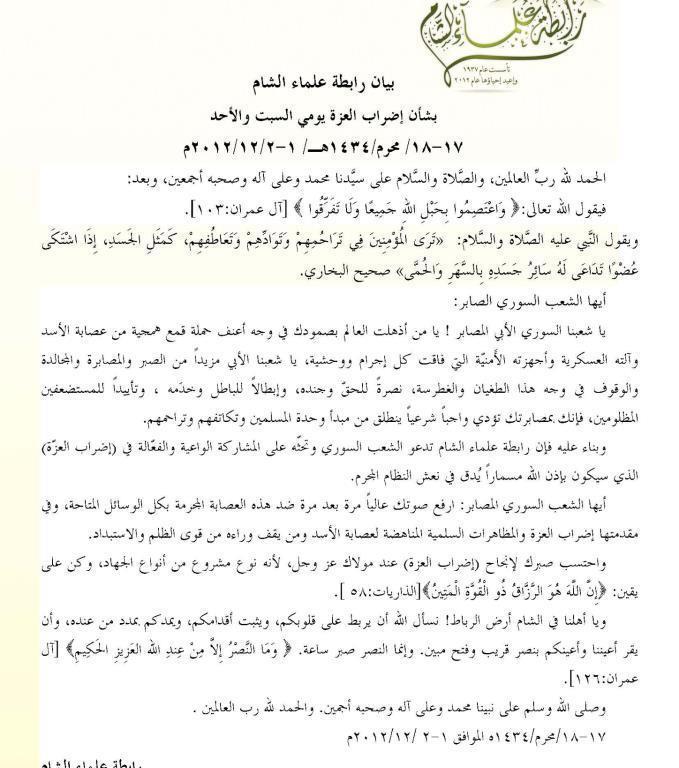 رابطة علماء الشام
تأسست عام ١٩٣٧
وأعيد إحياؤها عام ٢٠١٢
بيان رابطة علماء الشام
بشأن إضراب العزة يومي السبت والأحد
١٧-١٨/ محرم/١٤٣٤هـ/ ١-٢/١٢/٢٠١٢م
الحمد لله ربِّ العالمين، والصَّلاة والسَّلام على سيِّدنا محمد وعلى آله وصحبه أجمعين، وبعد:
فيقول الله تعالى:﴿ وَاعْتَصِمُوا بِحَبْلِ اللهِ جَمِيعًا وَلَا تَفَرَّقُوا ﴾ [آل عمران:١٠٣].
ويقول النَّبي عليه الصَّلاة والسَّلام: «تَرَى المُؤْمِنِينَ فِي تَرَاحُمِهِمْ وَتَوَادِّهِمْ وَتَعَاطُفِهِمْ، كَمَثَلِ الجَسَدِ، إِذَا اشْتَكَى
عُضْوًا تَدَاعَى لَهُ سَائِرُ جَسَدِهِ بِالسَّهَرِ وَالْحُمَّى» صحيح البخاري.
أيها الشعب السوري الصابر:
يا شعبنا السوري الأبي المصابر ! يا من أذهلت العالم بصمودك في وجه أعنف حملة قمع همجية من عصابة الأسد
وآلته العسكرية وأجهزته الأمنيّة التي فاقت كل إجرام ووحشية، يا شعبنا الأبي مزيداً من الصبر والمصابرة والمجالدة
والوقوف في وجه هذا الطغيان والغطرسة، نصرةً للحقّ وجنده، وإبطالاً للباطل وخدَمه ، وتأييداً للمستضعفين
المظلومين، فإنك بمصابرتك تؤدي واجباً شرعياً ينطلق من مبدأ وحدة المسلمين وتكاتفهم وتراحمهم.
وبناء عليه فإن رابطة علماء الشام تدعو الشعب السوري وتحثّه على المشاركة الواعية والفعّالة في (إضراب العزّة)
الذي سيكون بإذن الله مسماراً يُدق في نعش النظام المجرم.
أيها الشعب السوري المصابر: ارفع صوتك عالياً مرة بعد مرة ضد هذه العصابة المجرمة بكل الوسائل المتاحة، وفي
مقدمتها إضراب العزة والمظاهرات السلمية المناهضة لعصابة الأسد ومن يقف وراءه من قوى الظلم والاستبداد.
واحتسب صبرك لإنجاح (إضراب العزة) عند مولاك عز وجل، لأنه نوع مشروع من أنواع الجهاد، وكن على
يقين: ﴿إِنَّ اللَّهَ هُوَ الرَّزَّاقُ ذُو الْقُوَّةِ الْمَتِينُ﴾[الذاريات:٥٨ ].
ويا أهلنا في الشام أرض الرباط! نسأل الله أن يربط على قلوبكم، ويثبت أقدامكم، ويمدكم بمدد من عنده، وأن
يقر أعيننا وأعينكم بنصر قريب وفتح مبين. وإنما النصر صبر ساعة. ﴿ وَمَا النَّصْرُ إِلاَّ مِنْ عِندِ الله العَزِيزِ الحَكِيمِ﴾ [آل
عمران:١٢٦].
وصلى الله وسلم على نبينا محمد وعلى آله وصحبه أجمين. والحمد لله رب العالمين .
١٧-١٨/محرم/١٤٣٤ه الموافق ١-٢ /١٢/٢٠١٢م
رابطة علماء الشام